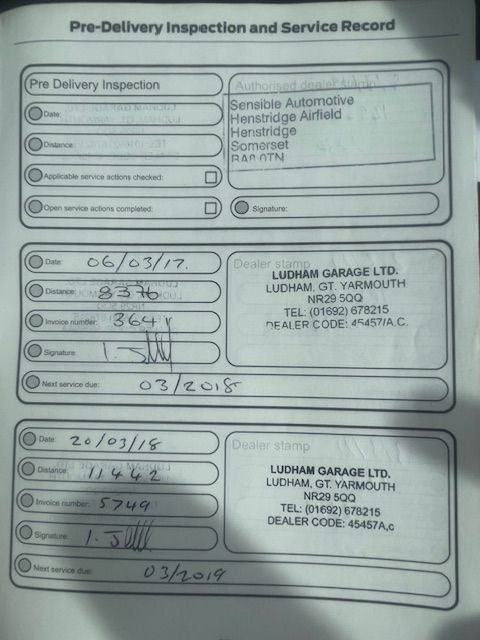 Pre-Delivery Inspection and Service Record
Pre Delivery Inspection
Date:
Distance:
Applicable service actions checked:
Open service actions completed:
Authorised dealer stamp
Sensible Automotive
Henstridge Airfield
Henstridge
Somerset
BA8 0TN
Signature:
Date: 06/03/17.
Distance: 8376
Invoice number: 3641
Signature:
Next service due: 03/2018
Dealer stamp
LUDHAM GARAGE LTD.
LUDHAM, GT. YARMOUTH
NR29 5QQ
TEL: (01692) 678215
DEALER CODE: 45457/A,C.
Date: 20/03/18
Distance: 11442
Invoice number: 5749
Signature:
Next service due: 03/2019
Dealer stamp
LUDHAM GARAGE LTD.
LUDHAM, GT. YARMOUTH
NR29 5QQ
TEL: (01692) 678215
DEALER CODE: 45457A,c